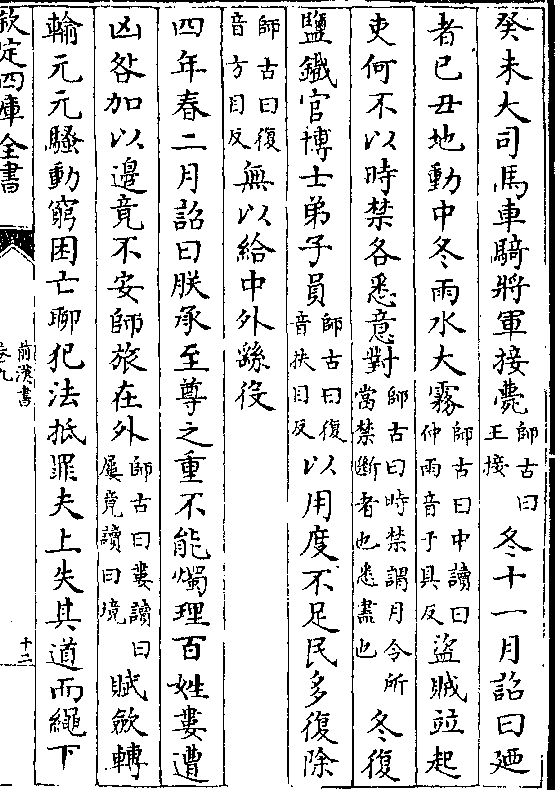 癸未大司馬車騎將軍接薨師古曰王接冬十一月詔曰廼
者已丑地動中冬雨水大霧師古曰中讀曰仲雨音于具反盜賊竝起
吏何不以時禁各悉意對師古曰時禁謂月令所當禁斷者也悉盡也冬復
鹽鐵官博士弟子員師古曰復音扶目反以用度不足民多復除
師古曰復音方目反無以給中外繇役
四年春二月詔曰朕承至尊之重不能燭理百姓婁遭
凶咎加以邊竟不安師旅在外師古曰婁讀曰屢竟讀曰境賦斂轉
輸元元騷動窮困亡聊犯法抵罪夫上失其道而繩下
欽定四庫全書
前漢書
卷九
十二